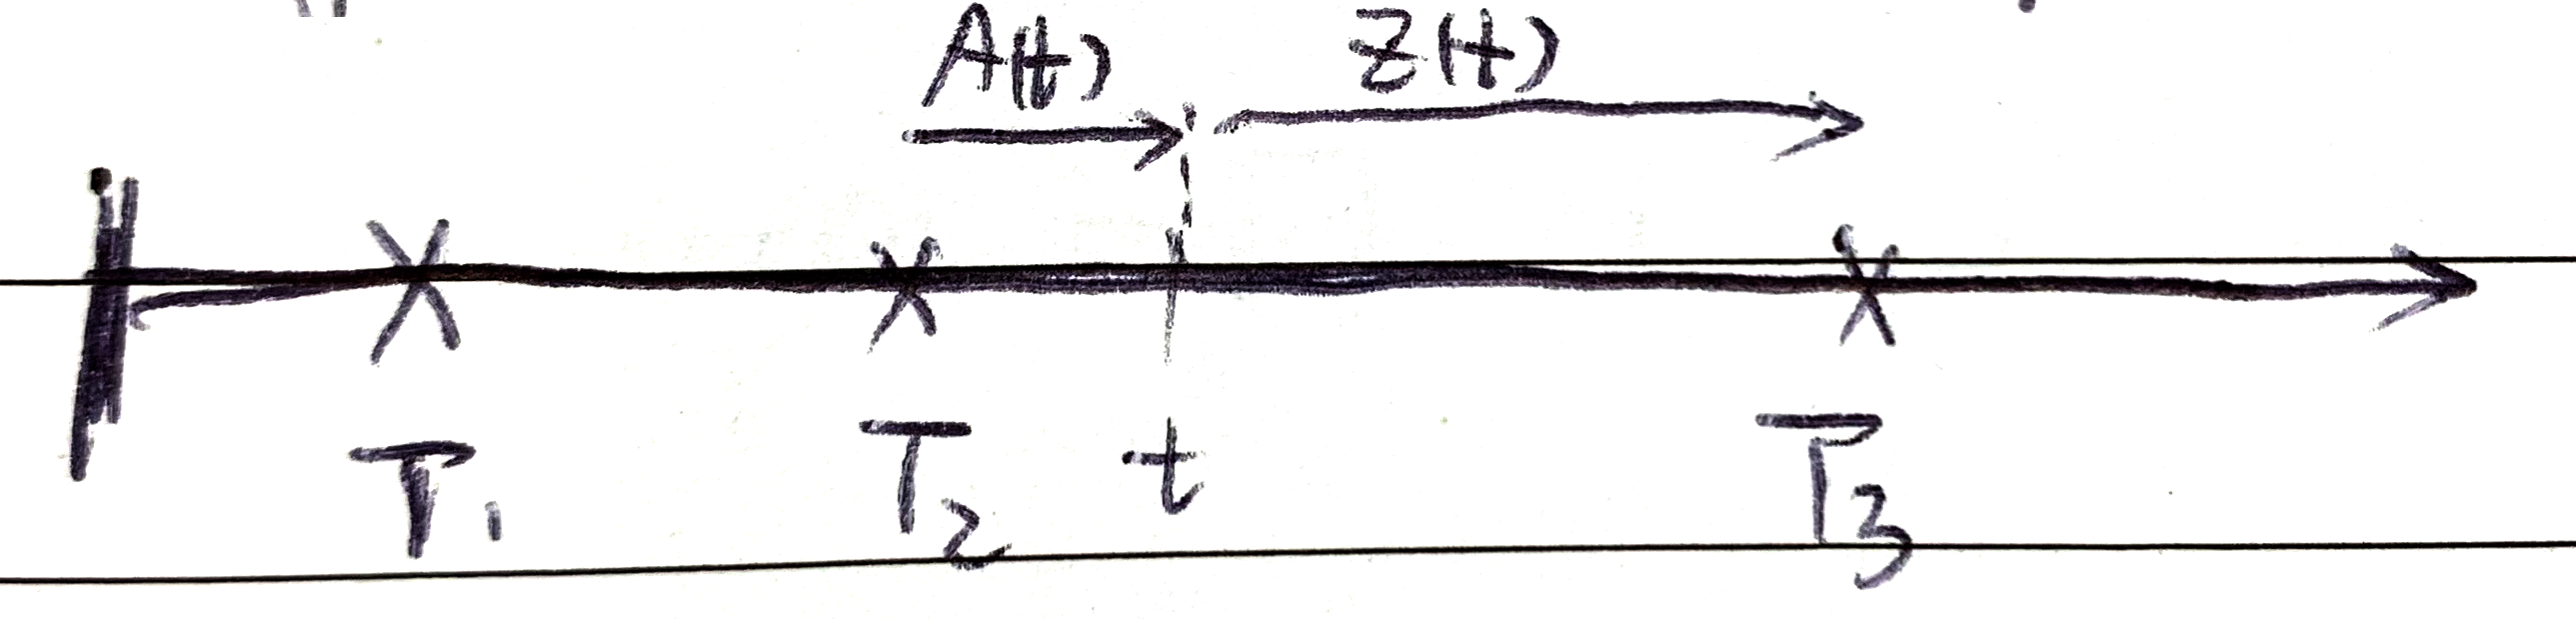 A(t) Z(t)
T₁ T₂ t T₃